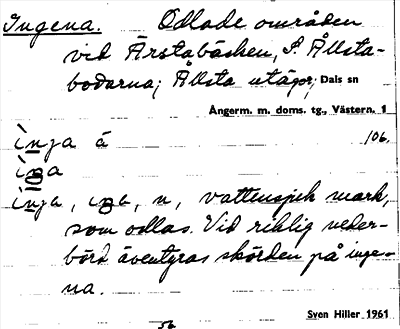 Ingena. Odlade områden
vid Ärstabäcken, S. Ållsta-
bodarna; Ållsta utägor; Dals sn
Ångerm. m. doms. tg., Västern. 1
ìnja å 106.
inja, n, vattensjuk mark,
som odlas. Vid riklig neder-
börd äventyras skörden på inge-
na.
Sven Hiller 1961
56